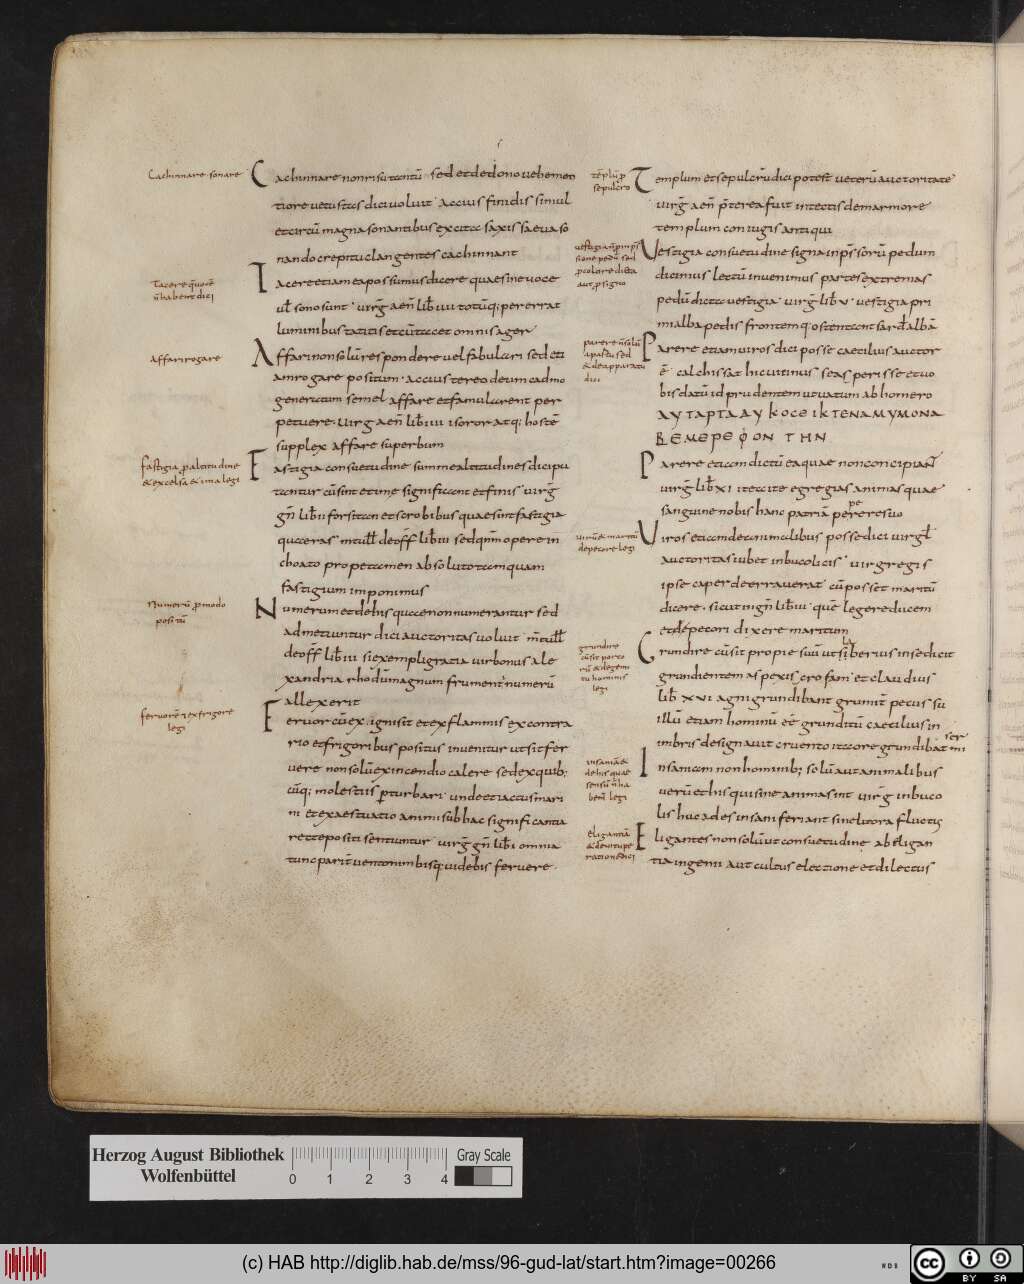 Cachinnare sonare
Cachinnare non risu tantū sed et de sono vehemen
tiore vetustas dici voluit Accius finidis simul
et circū magna sonantibus excita saxis saeva so
nando crepitu clangentes cachinnant
Tacere etiam ea possumus dicere quae sine voce
vel sono sunt virg aen lib iiii totūq; per errat
luminibus tacitis et cū tacet omnis ager
affari rogare
Affari non solū respondere vel fabulari sed eti
am rogare positum Accius tereo deum cadmo
generatum semel affare et famularent per
petuere virg aen lib iiii i soror atq; hostē
supplex affare superbum
fastigia p altitudine
& excelsa & ima legi
Fastigia consuetudine summe altitudines dicipu
tantur cū sint et ime significant et finis virg
gn lib ii forsitan et scrobibus quae sint fastigia
quaeras
fastigium imponimus
Numerū p modo
positū
Numerum et de his quae non numerantur sed
ad metiuntur dici auctoritas voluit m tull
de off lib iii si exempli gratia vir bonus ale
xandria rhodū magnum frumenti numerū
allexerit
fervorē & ex frigore
legi
Fervor cū ex ignis sit et ex flammis ex contra
rio et frigoribus positus invenitur ut sit fer
vere non solū ex incendio calere sed ex quib;
cūq; molestiis pturbari unde etiactus mari
ni et ex aestuatio animi sub hac significantia
recte positi sentiuntur virg gn lib i omnia
tunc parit vento nimbisq videbis fervere
tēplū p
sepulcro
Templum et sepulcrū dici potest veterū auctoritate
virg aen pterea fuit in tectis de marmore
templum coniugis antiqui
Vestigia consuetudine signa inps sorū pedum
dicimus lectū invenimus partes extremas
pedū dicta vestigia virg lib v vestigia pri
mi alba pedis frontemq ostentant sard albā
Parere etiam viros dici posse caecilius auctor
ē
bis datū id prudentem vevatum ab homero
ΒΕΜΕΡΕΦΟΝ ΤΗΝ
Parere etiam dictū ea quae non concipiant
virg lib xi ite ait egregias animas quae
sanguine nobis hanc patriā peperere suo
virū & maritū
de pecore legi
Viros etiam de animalibus posse dici virgl
auctoritas iubet in bucolicis vir gregis
ipse caper deerraverat cū posset maritū
dicere sicut in gn lib iii quē legere ducem
et de pecori dixere maritum
grundire
cū sit porco
rū & de gemi
tu hominis
legi
Grundire cū sit proprie suū ut siberius insedicit
grundientem aspexi scrofam et claudius
lib xvi agni grundibant grunnit pecus su
illū etiam hominū ēē grunditū caecilius in
imbris designavit cruento ita ore grundibat miser
insaniā &
de his quae
sensū n ha
bent legi
Insaniam non hominib; solū aut animalibus
verū et his qui sine anima sint virg in buco
lis huc ades insani feriant sine litora fluctus
eligantiā
& de vitupe
ratione dici
Eligantes non solū ut consuetudine ab eligan
tia ingenii aut cultus electione et dilectus
Herzog August Bibliothek
Wolfenbüttel
0 1 2 3 4
Gray Scale
(c) HAB http://diglib.hab.de/mss/96-gud-lat/start.htm?image=00266
cc BY SA